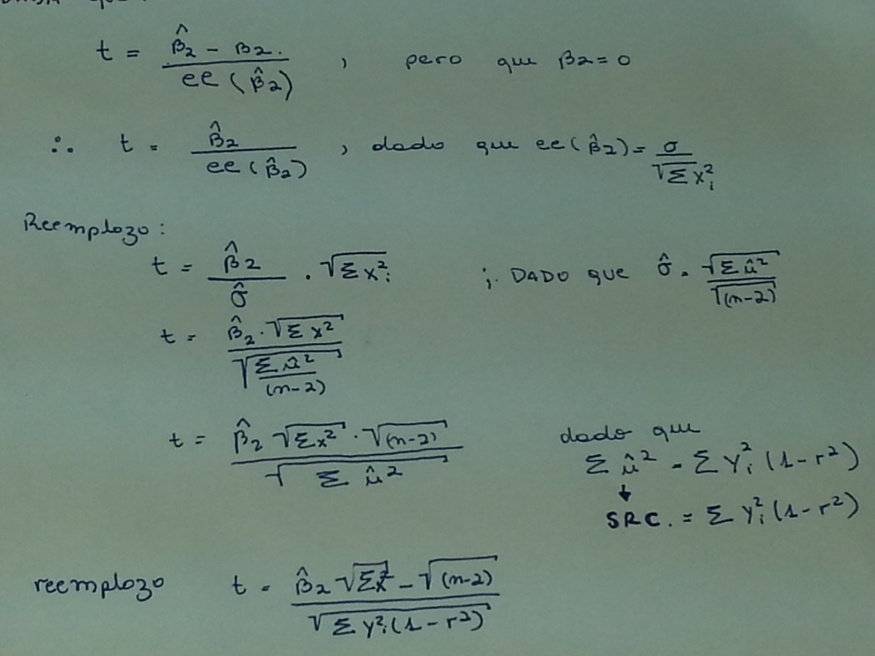 t = (β̂2 - β2.) / ee(β̂2) , pero que β2 = 0
∴ t = β̂2 / ee(β̂2) , dado que ee(β̂2) = σ / √Σxᵢ²
Reemplazo:
t = β̂2 / σ̂ · √Σxᵢ² ; DADO QUE σ̂ = √Σû² / √(n-2)
t = β̂2 · √Σx² / √(Σû² / (n-2))
t = β̂2 √Σx² · √(n-2) / √Σû² dado que
Σû² = Σyᵢ² (1-r²)
↓
SRC. = Σyᵢ² (1-r²)
reemplazo t = β̂2 √Σx² - √(n-2) / √Σyᵢ²(1-r²)